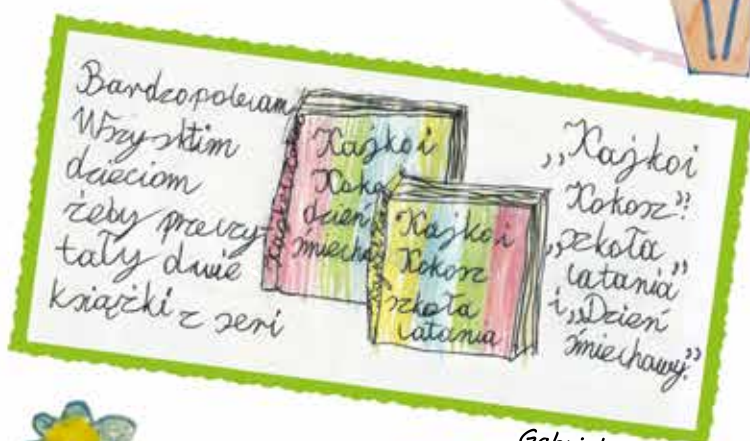 Bardzopolecam
Wszyskim
dzieciom
żeby przeczy-
tały dwie
książki z seri
Kajko i
Koko
dzień
śmiecha
Kajko i
Kokosz
szkoła
latania
„Kajkoi
Kokosz”:
„szkoła
latania”
i „Dzień
śmiechawy.”